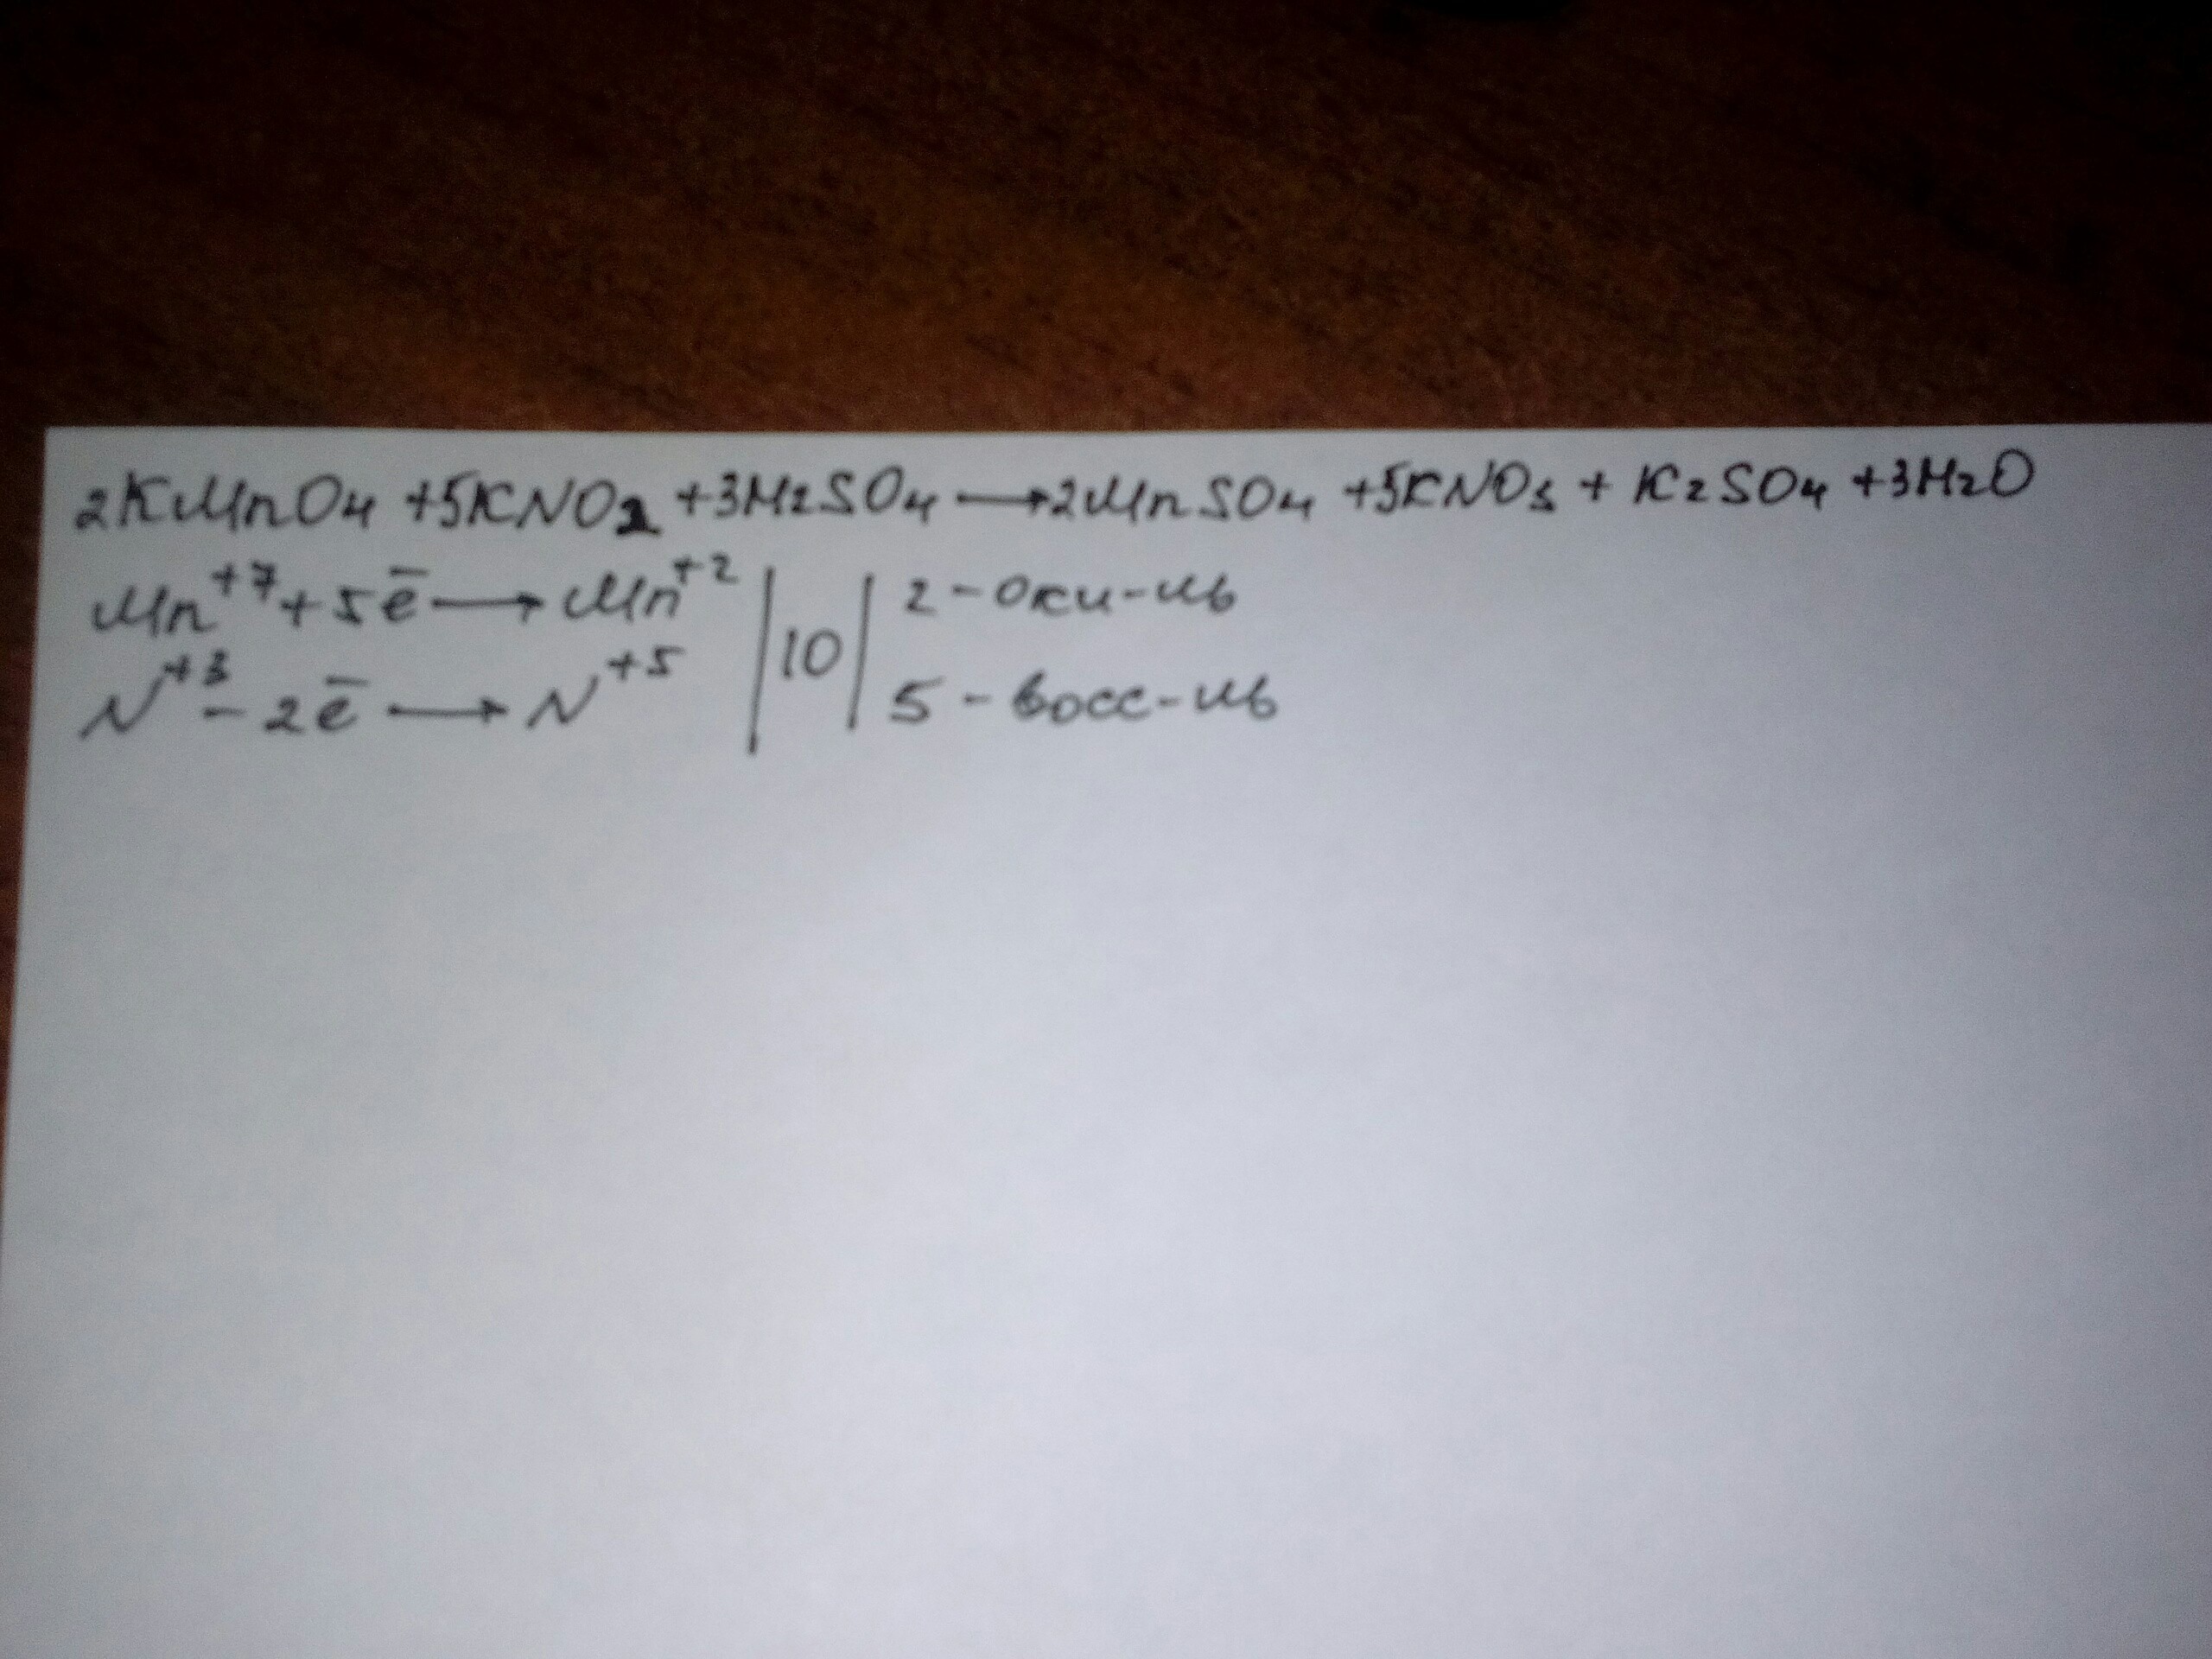 2KMnO4 +5KNO2 +3H2SO4 ⟶2MnSO4 +5KNO3 + K2SO4 +3H2O
Mn⁺⁷+5ē⟶Mn⁺² | 10 | 2-оки-ль
N⁺³-2ē⟶N⁺⁵ 5-восс-ль